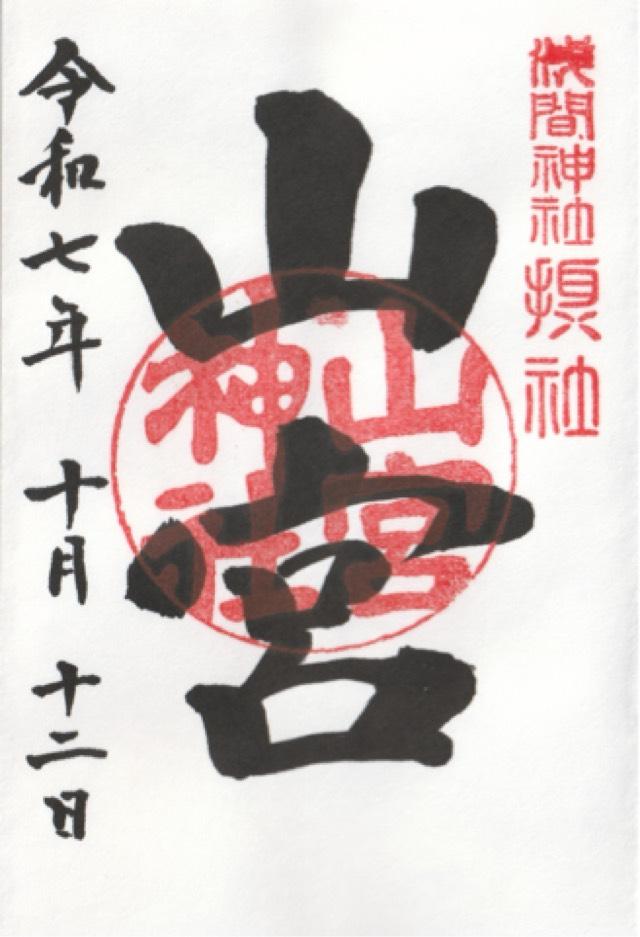 浅間神社摂社
山宮
山宮
神社
令和七年 十月 十二日